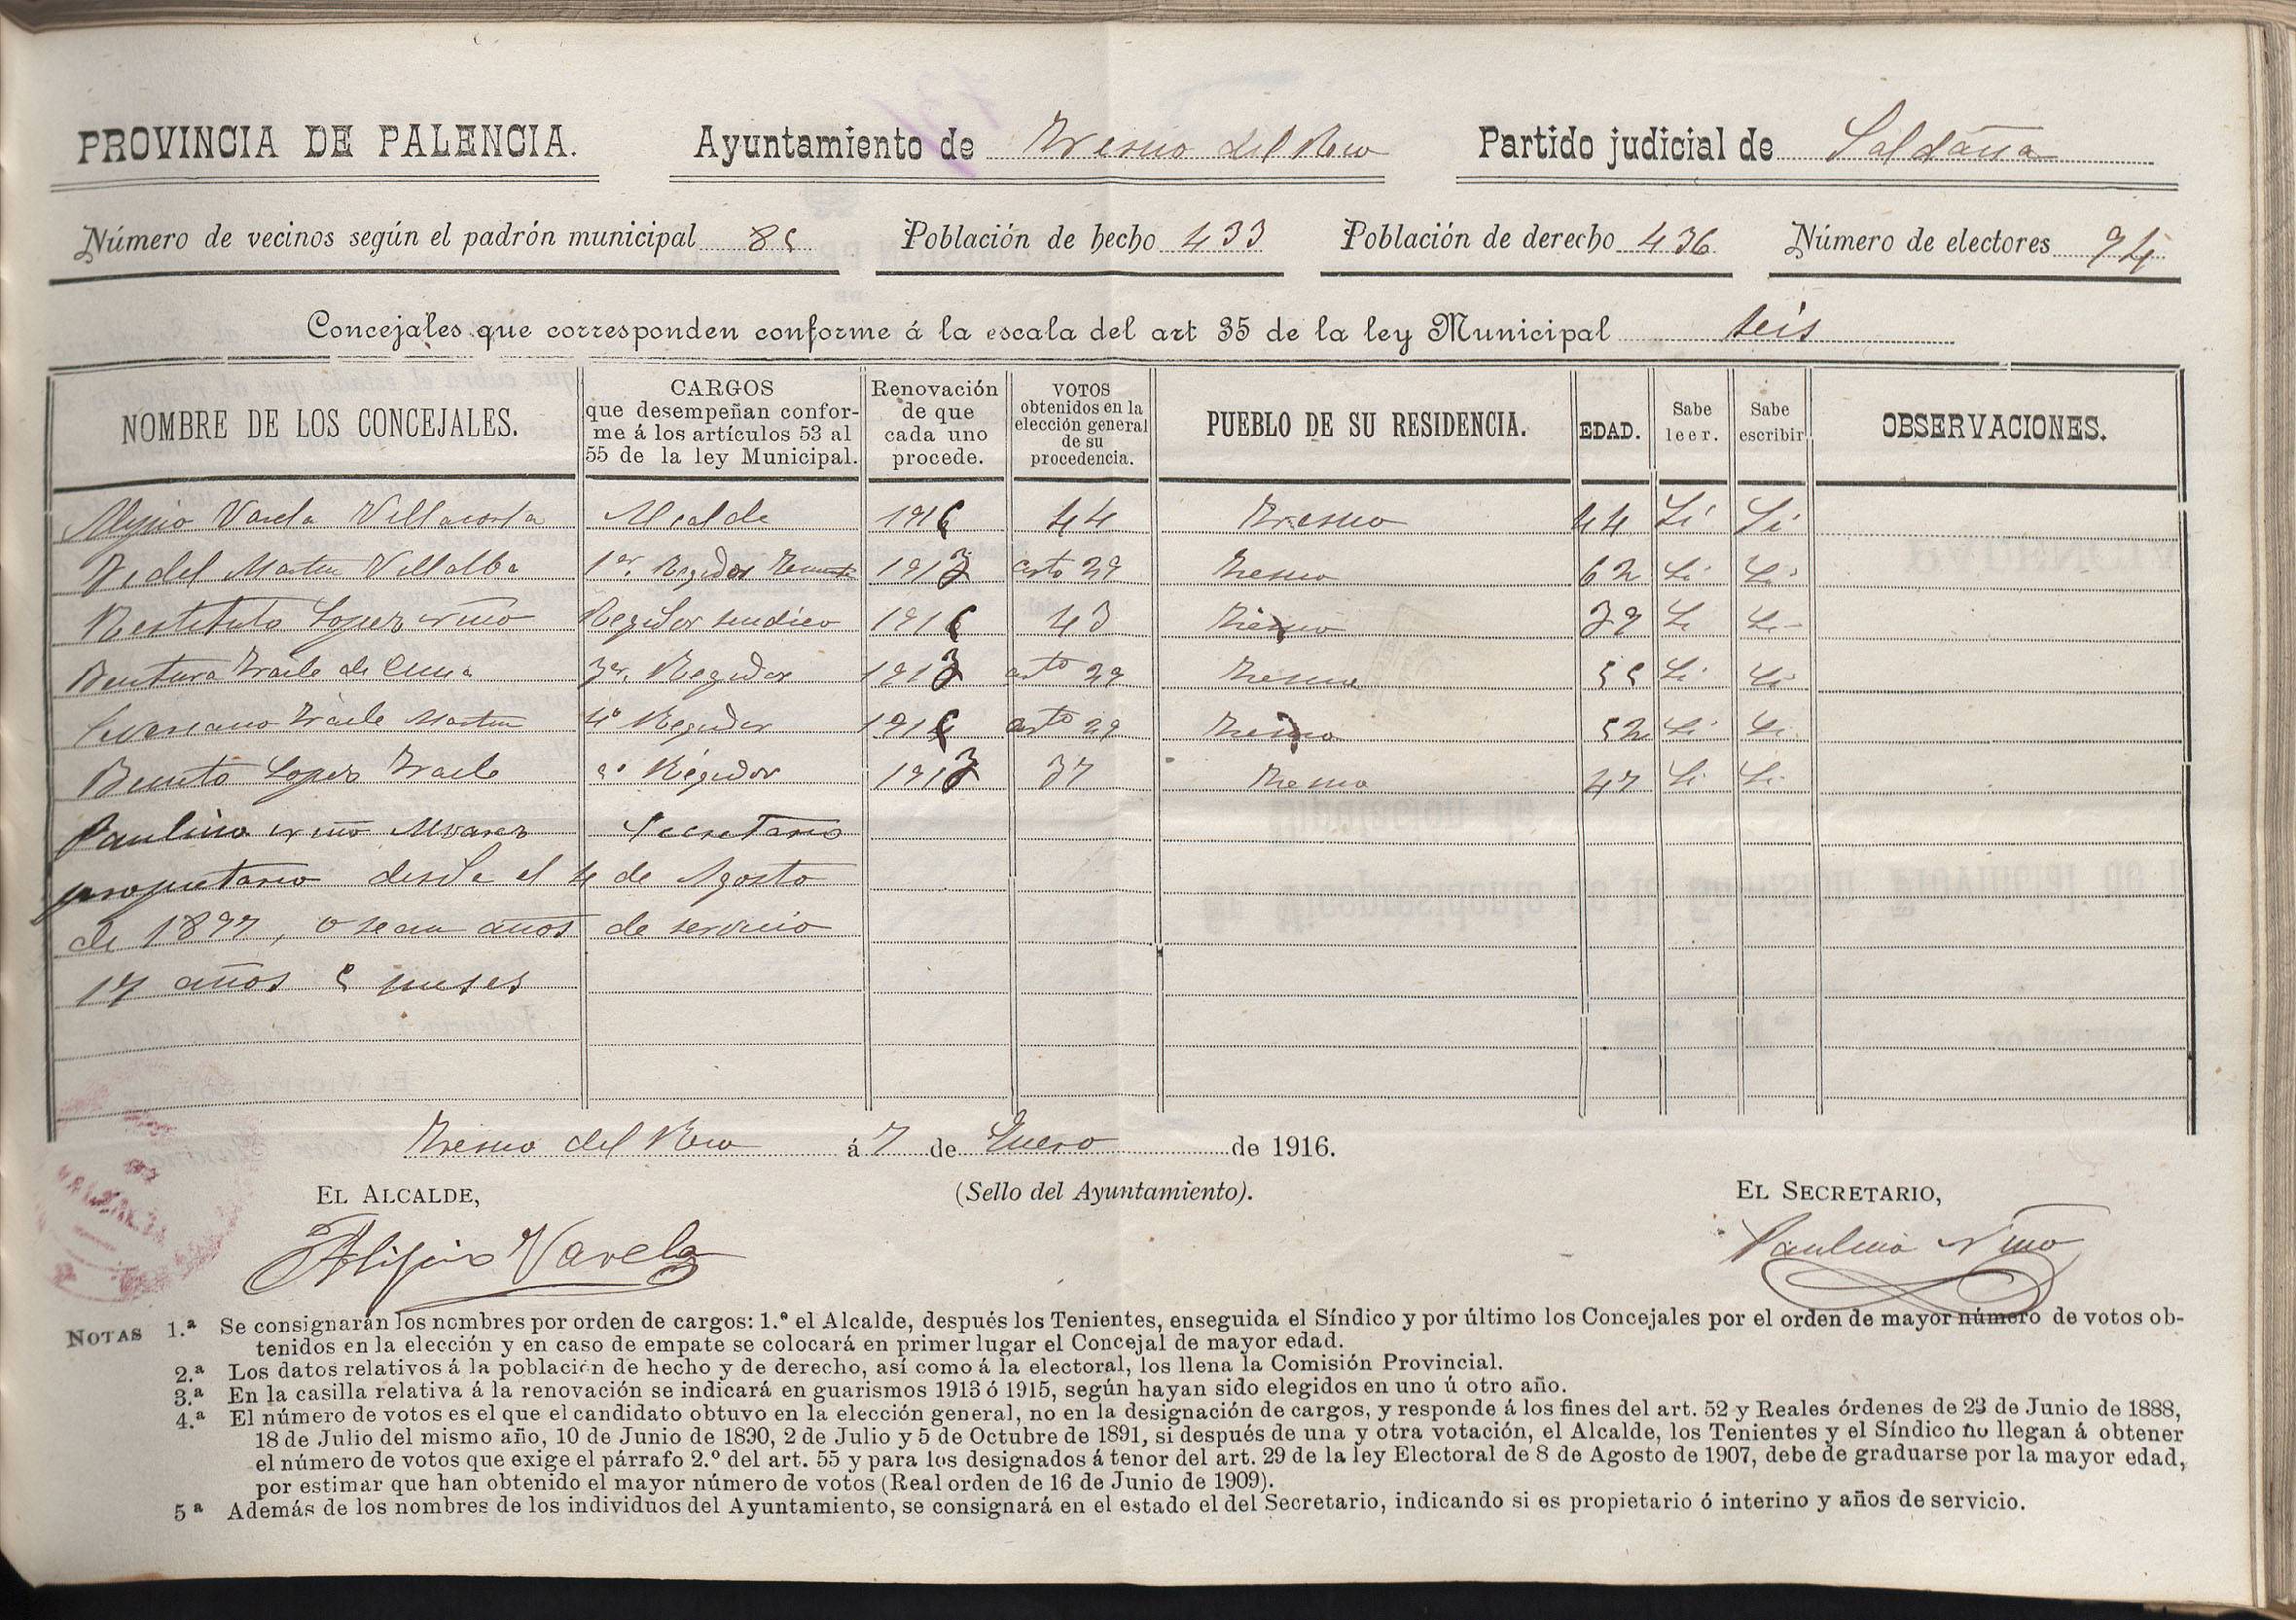 PROVINCIA DE PALENCIA. Ayuntamiento de Fresno del Rio Partido judicial de Saldaña
Número de vecinos según el padrón municipal 85 Población de hecho 433 Población de derecho 436 Número de electores 94
Concejales que corresponden conforme á la escala del art 35 de la ley Municipal seis
NOMBRE DE LOS CONCEJALES.
CARGOS
que desempeñan confor-
me á los artículos 53 al
55 de la ley Municipal.
Renovación
de que
cada uno
procede.
VOTOS
obtenidos en la
elección general
de su
procedencia.
PUEBLO DE SU RESIDENCIA.
EDAD.
Sabe
leer.
Sabe
escribir
OBSERVACIONES.
Varela Villacorta Alcalde 1916 44 Fresno 44 Si Si
Fidel Martin Villalba 1er. Regidor 1913 arto 29 Fresno 62 Si Si
Restituto Lopez Niño Regidor sindico 1916 43 Fresno 39 Si Si
Bentura Fraile de Cima 3er. Regidor 1913 arto 29 Fresno 55 Si Si
Fraile Martin 4º Regidor 1916 arto 29 Fresno 52 Si Si
Benito Lopez Fraile 5º Regidor 1913 37 Fresno 47 Si Si
Paulino Niño Alvarez Secretario
propietario desde el 4 de Agosto
de 1897, o sean años de servicio
17 años 5 meses
Fresno del Rio á 7 de Enero de 1916.
EL ALCALDE, (Sello del Ayuntamiento). EL SECRETARIO,
Varela Paulino Niño
NOTAS 1.ª Se consignarán los nombres por orden de cargos: 1.º el Alcalde, después los Tenientes, enseguida el Síndico y por último los Concejales por el orden de mayor número de votos ob-
tenidos en la elección y en caso de empate se colocará en primer lugar el Concejal de mayor edad.
2.ª Los datos relativos á la población de hecho y de derecho, así como á la electoral, los llena la Comisión Provincial.
3.ª En la casilla relativa á la renovación se indicará en guarismos 1913 ó 1915, según hayan sido elegidos en uno ú otro año.
4.ª El número de votos es el que el candidato obtuvo en la elección general, no en la designación de cargos, y responde á los fines del art. 52 y Reales órdenes de 23 de Junio de 1888,
18 de Julio del mismo año, 10 de Junio de 1890, 2 de Julio y 5 de Octubre de 1891, si después de una y otra votación, el Alcalde, los Tenientes y el Síndico no llegan á obtener
el número de votos que exige el párrafo 2.º del art. 55 y para los designados á tenor del art. 29 de la ley Electoral de 8 de Agosto de 1907, debe de graduarse por la mayor edad,
por estimar que han obtenido el mayor número de votos (Real orden de 16 de Junio de 1909).
5ª Además de los nombres de los individuos del Ayuntamiento, se consignará en el estado el del Secretario, indicando si es propietario ó interino y años de servicio.